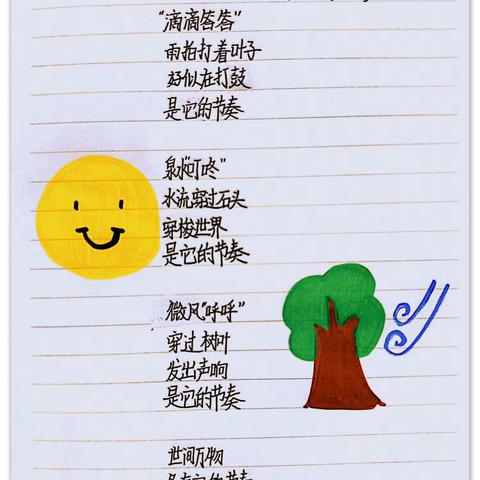 “滴滴答答”
雨拍打着叶子
好似在打鼓
是它的节奏
泉水“叮咚”
水流穿过石头
穿梭世界
是它的节奏
微风“呼呼”
穿过树叶
发出声响
是它的节奏
世间万物